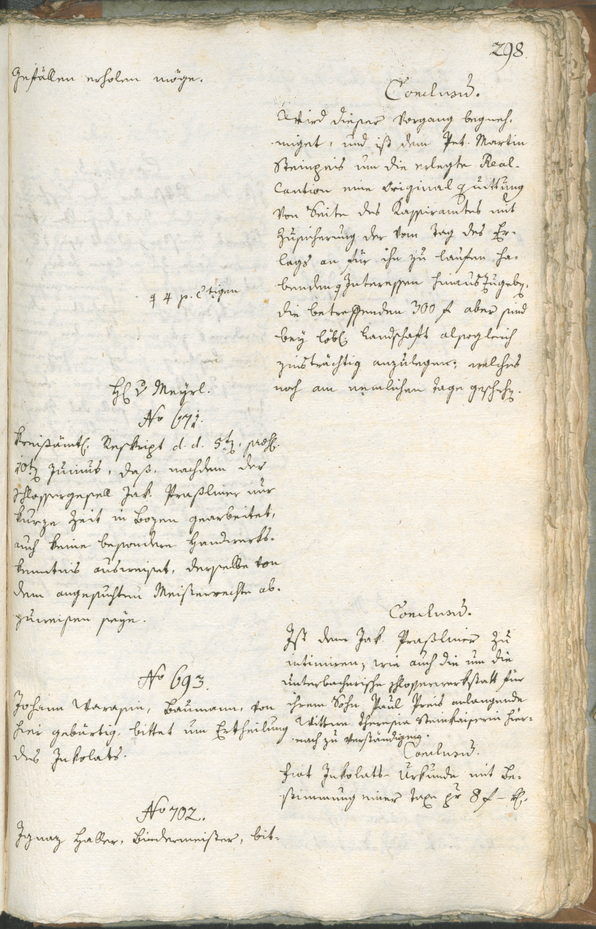 298.
gefällen erholen möge.
Conclusum.
Wird dieser Vorgang begneh-
miget, und ist dem Pet. Martin
Steinpeis um die erlegte Real-
Caution eine original Quittung
von Seite des Kassieramtes mit
Zusicherung der vom Tag des Er-
lags an für ihn zu laufen ha-
benden Interessen hinauszugeben,
die betreffenden 300 f aber sind
bey löbl. Landschaft alsogleich
zinsträchtig anzulegen; welches
noch am nemlichen Tage geschehen.
4 p. Ctigen
H. v. Meyrl.
No 671.
Kreisämtl. Reskript d. d. 5t, pres.
10t Junius, daß, nachdem der
Schlossergesell Jak. Praßlmer nur
kurze Zeit in Bozen gearbeitet,
auch keine besondere Handwerks-
kenntnis ausweiset, derselbe von
dem angesuchten Meisterrechte ab-
zuweisen seye.
Conclusum.
Ist dem Jak. Praßlmer zu
intimiren, wie auch die um die
unterbacherische Schlosserwerkstatt für
ihren Sohn Paul Preis anlangende
Wittwe Theresia Steinkaiserin hier-
nach zu verständigen.
No 693.
Johann Warasin, Baumann, von
hier gebürtig, bittet um Ertheilung
des Inkolats.
Conclusum.
Fiat Inkolats-Urkunde mit Be-
stimmung einer Taxe pr 8 f – kr.
No 702.
Ignaz Haller, Bindermeister, bit-